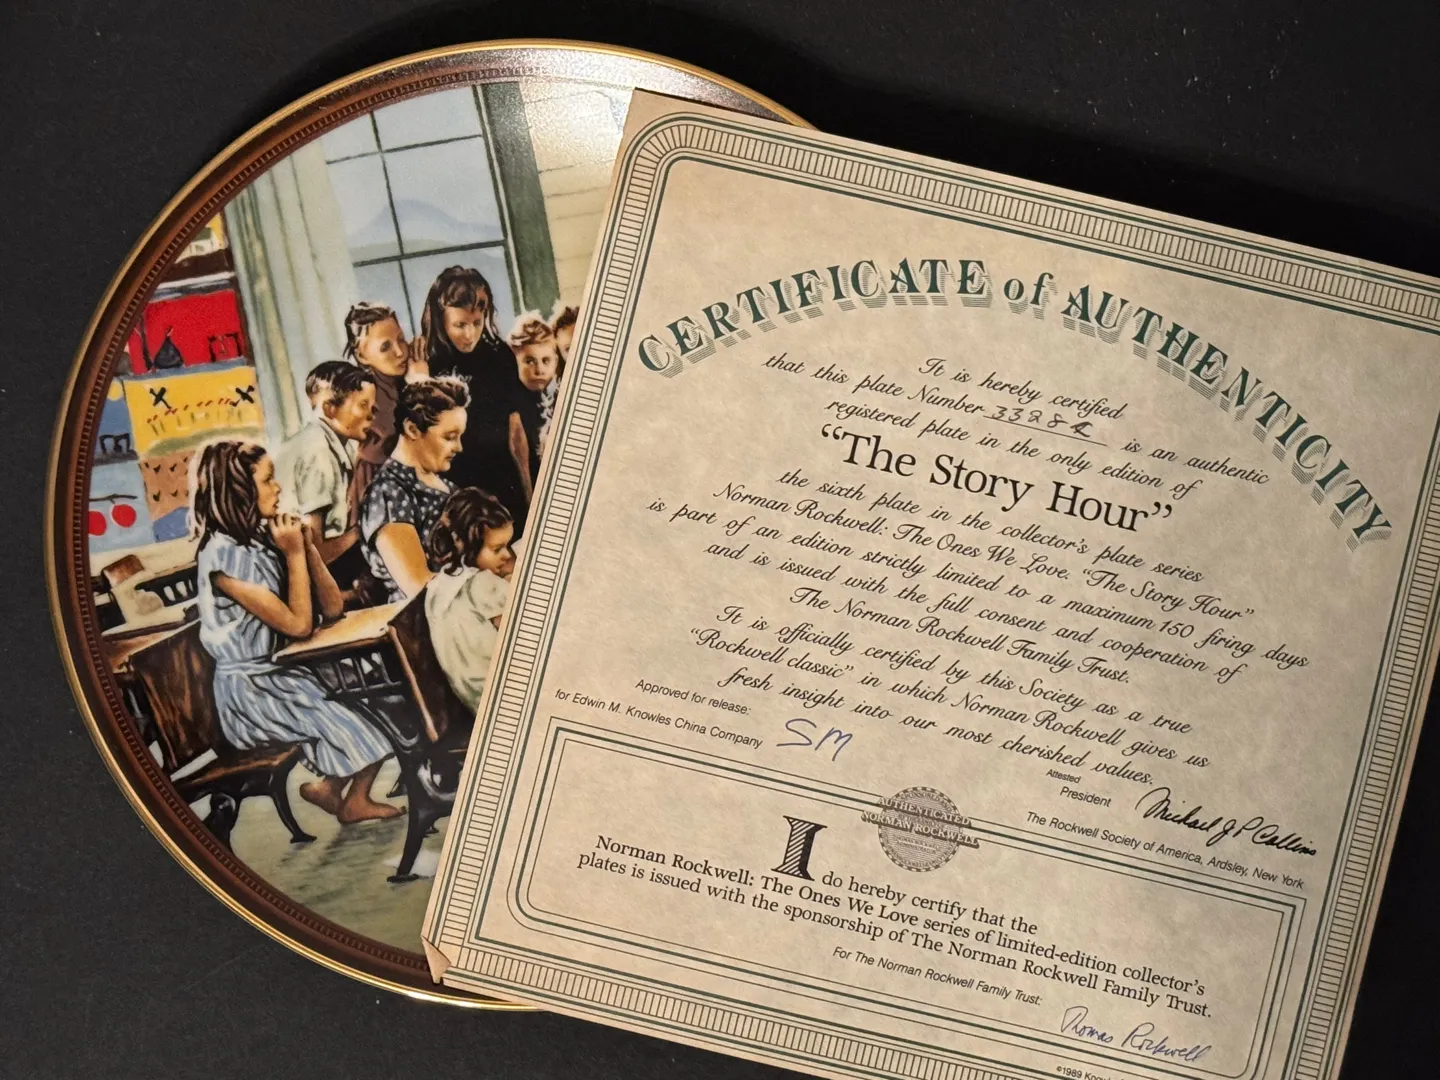 CERTIFICATE of AUTHENTICITY
It is hereby certified
that this plate Number is an authentic
registered plate in the only edition of
“The Story Hour”
the sixth plate in the collector's plate series
Norman Rockwell: The Ones We Love. “The Story Hour”
is part of an edition strictly limited to a maximum 150 firing days
and is issued with the full consent and cooperation of
The Norman Rockwell Family Trust.
It is officially certified by this Society as a true
“Rockwell classic” in which Norman Rockwell gives us
fresh insight into our most cherished values.
Approved for release:
for Edwin M. Knowles China Company SM
Attested
President Michael J P Collins
The Rockwell Society of America, Ardsley, New York
AUTHENTICATED
NORMAN ROCKWELL
I do hereby certify that the
Norman Rockwell: The Ones We Love series of limited-edition collector's
plates is issued with the sponsorship of The Norman Rockwell Family Trust.
For The Norman Rockwell Family Trust:
Thomas Rockwell
©1989